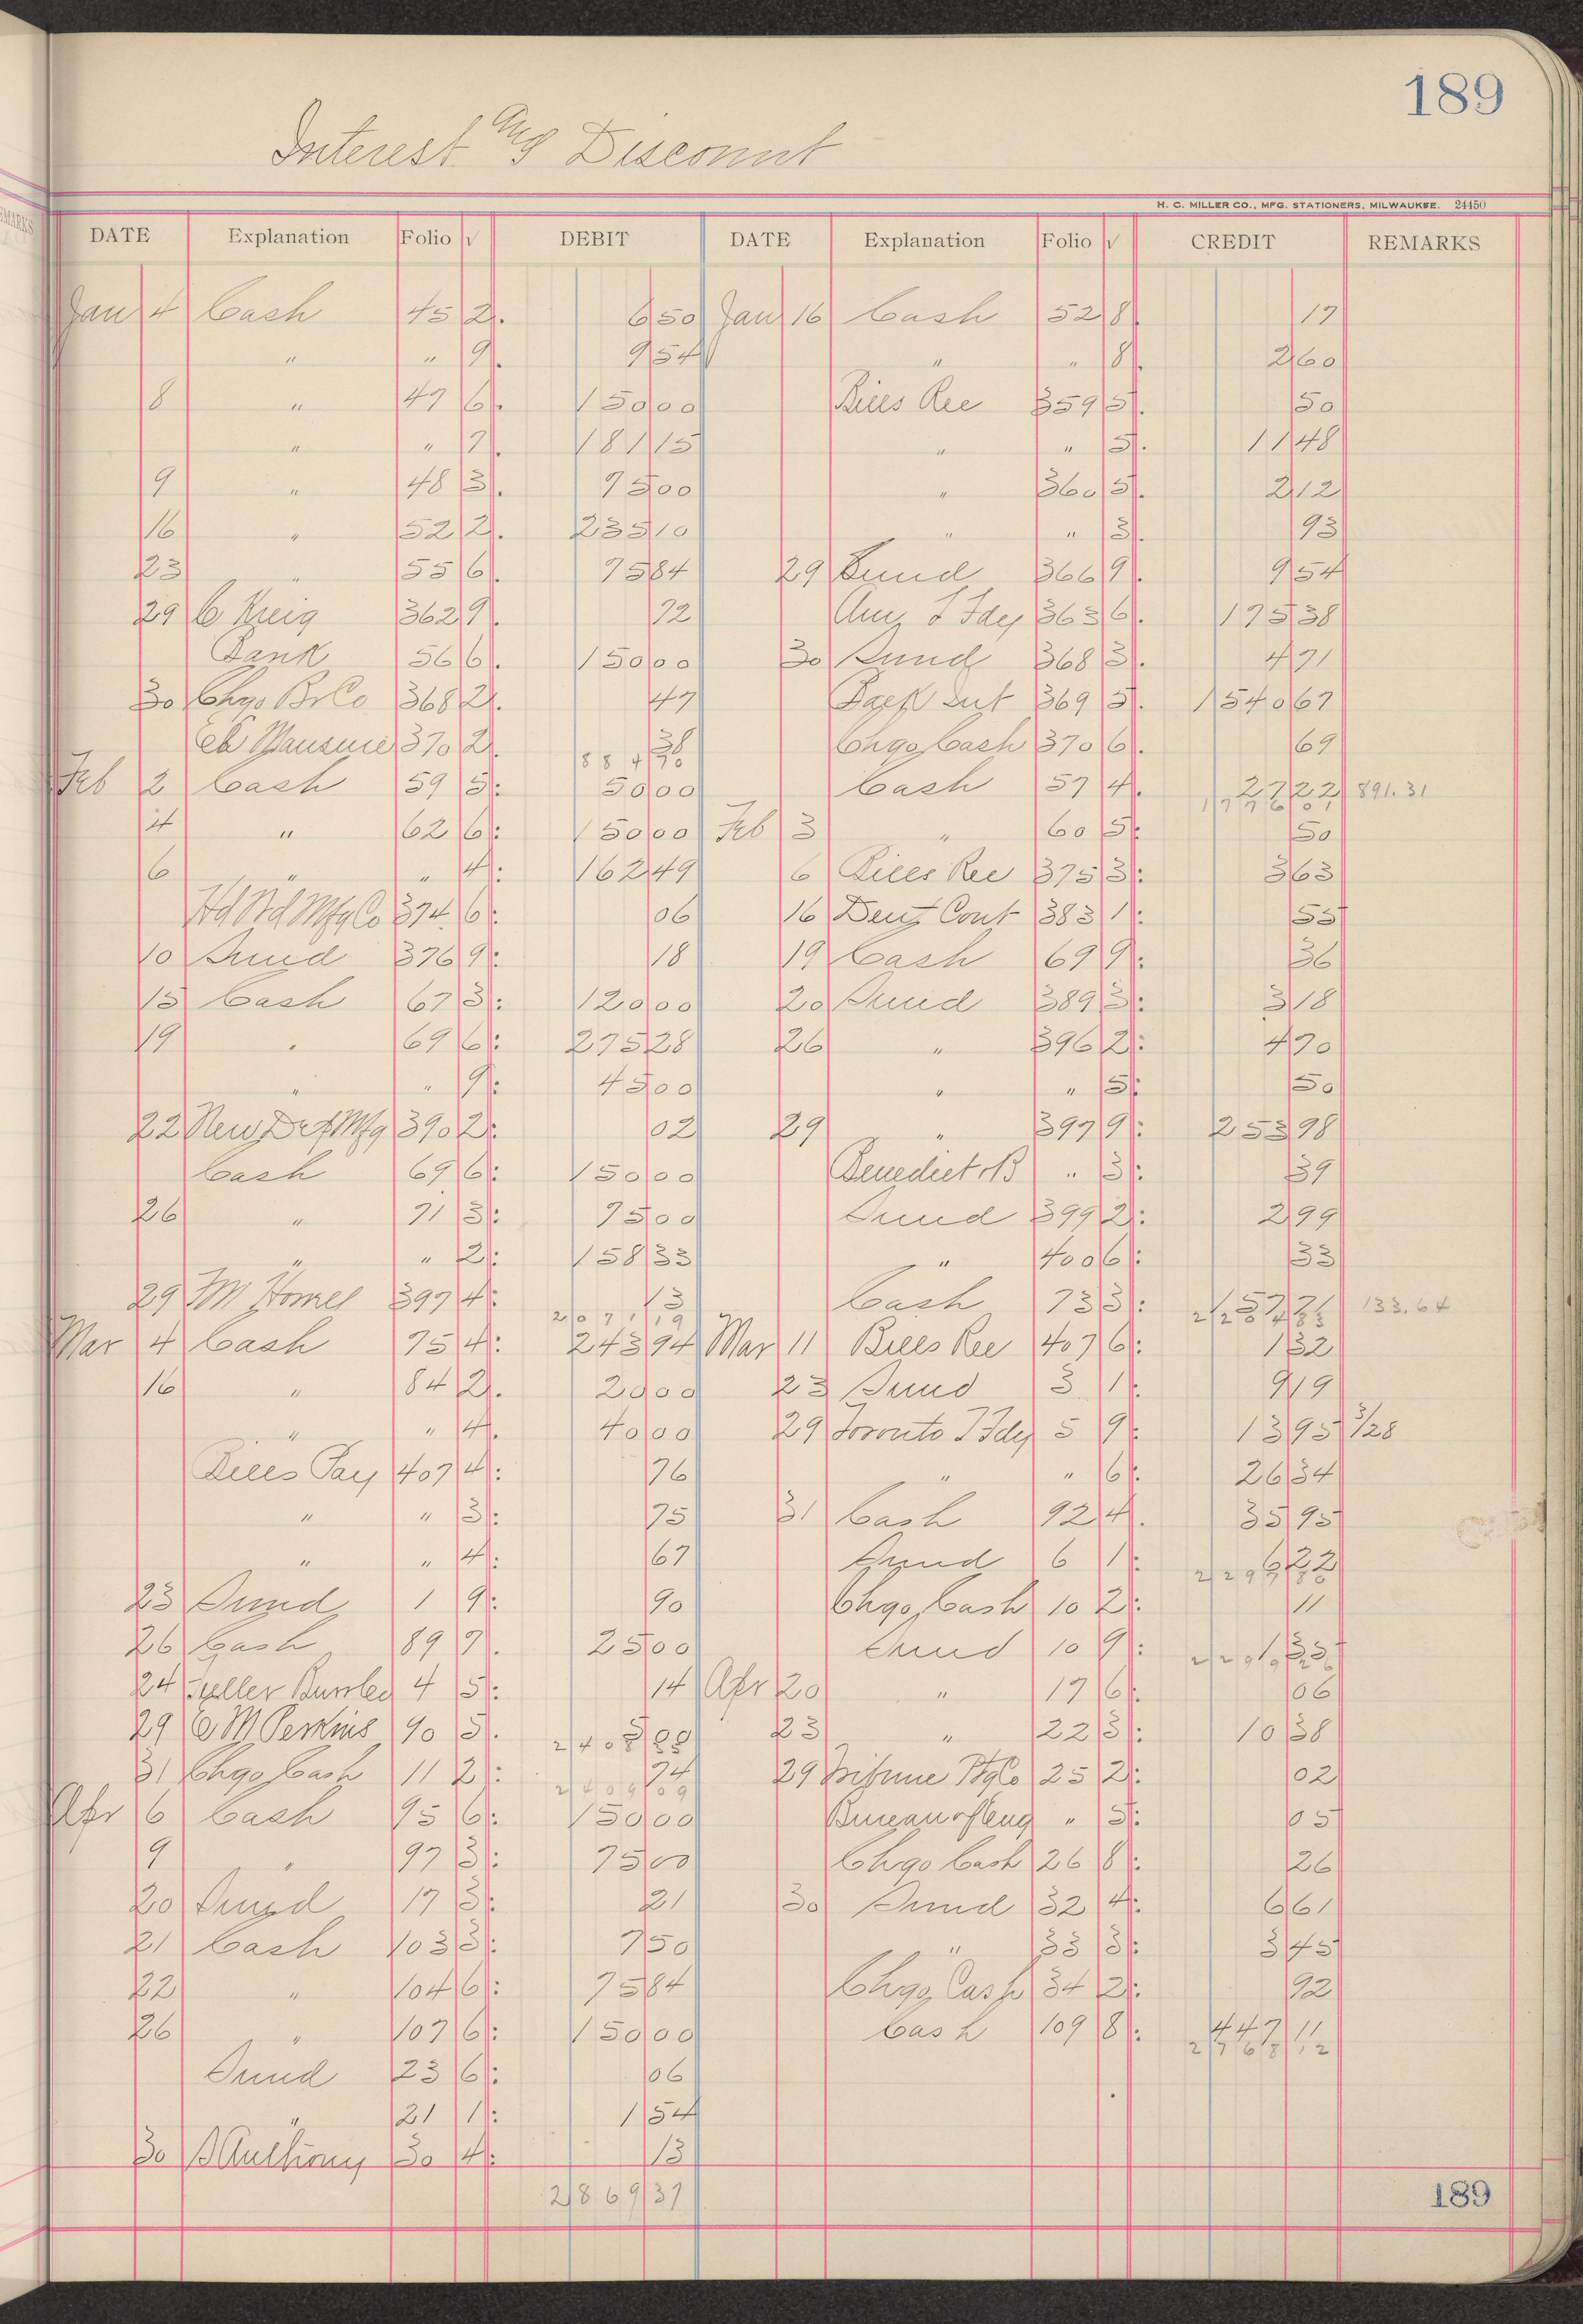 189
Interest and Discount
H. C. MILLER CO., MFG. STATIONERS, MILWAUKEE. 24450
DATE Explanation Folio √ DEBIT DATE Explanation Folio √ CREDIT REMARKS
Jan 4 Cash 45 2 6 50 Jan 16 Cash 52 8 17
" " 9 9 54 " " 8 2 60
8 " 47 6 150 00 Bills Rec 359 5 50
" " 7 181 15 " " 5 11 48
9 " 48 3 75 00 " 360 5 2 12
16 " 52 2 235 10 " " 3 93
23 " 55 6 75 84 29 Sund 366 9 9 54
29 C 362 9 72 Am T Fdy 363 6 175 38
Bank 56 6 150 00 30 Sund 368 3 4 71
30 Chgo Br Co 368 2 47 Int 369 5 1540 67
370 2 38 Chgo Cash 370 6 69
884 70
Feb 2 Cash 59 5 50 00 Cash 57 4 27 22 891.31
4 " 62 6 150 00 Feb 3 " 60 5 50
6 " " 4 162 49 6 Bills Rec 375 3 3 63
Mfg Co 374 6 06 16 Cont 383 1 55
10 Sund 376 9 18 19 Cash 69 9 36
15 Cash 67 3 120 00 20 Sund 389 3 3 18
19 " 69 6 275 28 26 " 396 2 4 70
" " 9 45 00 " " 5 50
22 New Mfg 390 2 02 29 " 397 9 253 98
Cash 69 6 150 00 Benedict " 3 39
26 " 71 3 75 00 Sund 399 2 2 99
" " 2 158 33 " 400 6 33
29 M Homes 397 4 13 Cash 73 3 133.64
2071 19
Mar 4 Cash 75 4 243 94 Mar 11 Bills Rec 407 6 1 32
16 " 84 2 20 00 23 Sund 3 1 9 19
" " 4 40 00 29 Toronto T Fdy 5 9 13 95 3/28
Bills Pay 407 4 76 " " 6 26 34
" " 3 75 31 Cash 92 4 35 95
" " 4 67 Sund 6 1
23 Sund 1 9 90 Chgo Cash 10 2 11
26 Cash 89 7 25 00 Sund 10 9
24 Fuller 4 5 14 Apr 20 " 17 6 06
29 C M Perkins 90 5 23 " 22 3 10 38
31 Chgo Cash 11 2 74 29 Tribune 25 2 02
2404 09
Apr 6 Cash 95 6 150 00 Bureau of Eng " 5 05
9 " 97 3 75 00 Chgo Cash 26 8 26
20 Sund 17 3 21 30 Sund 32 4 6 61
21 Cash 103 3 7 50 " 33 3 3 45
22 " 104 6 75 84 Chgo Cash 34 2 92
26 " 107 6 150 00 Cash 109 8 447 11
Sund 23 6 06
" 21 1 1 54
30 Anthony 30 4 13
2869 37
189